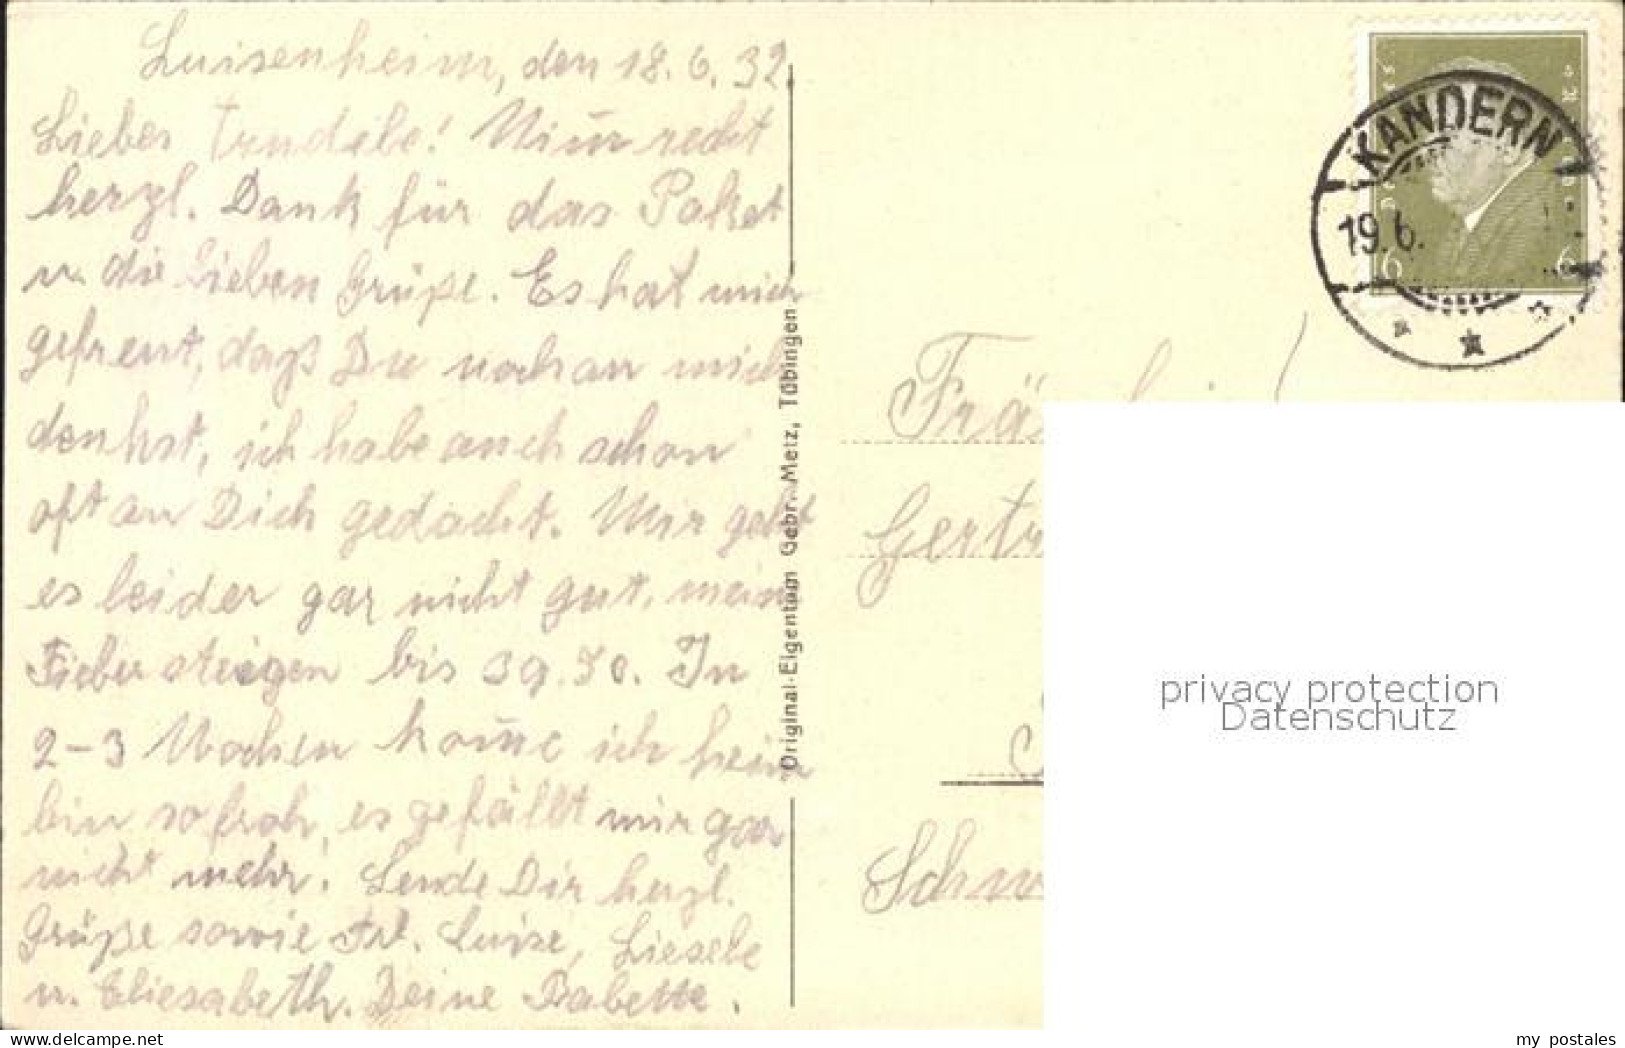 Luisenheim, den 18.6.32.
Liebes Trudele! Nim̄ recht
herzl. Dank für das Paket
u. die lieben Grüße. Es hat mich
gefreut, dass Du noch an mich
denkst, ich habe auch schon
oft an Dich gedacht. Mir geht
es leider gar nicht gut, meine
Fieber steigen bis 39.70. In
2-3 Wochen kom̄e ich heim
bin so froh, es gefällt mir gar
nicht mehr! Sende Dir herzl.
Grüße sowie Frl. Luise, Liesele
u. Eliesabeth. Deine Babette.
Original-Eigentum Gebr. Metz, Tübingen
KANDERN
19.6.
6 6
Frä
Gertr
Schw
privacy protection
Datenschutz
delcampe.net
my_postales